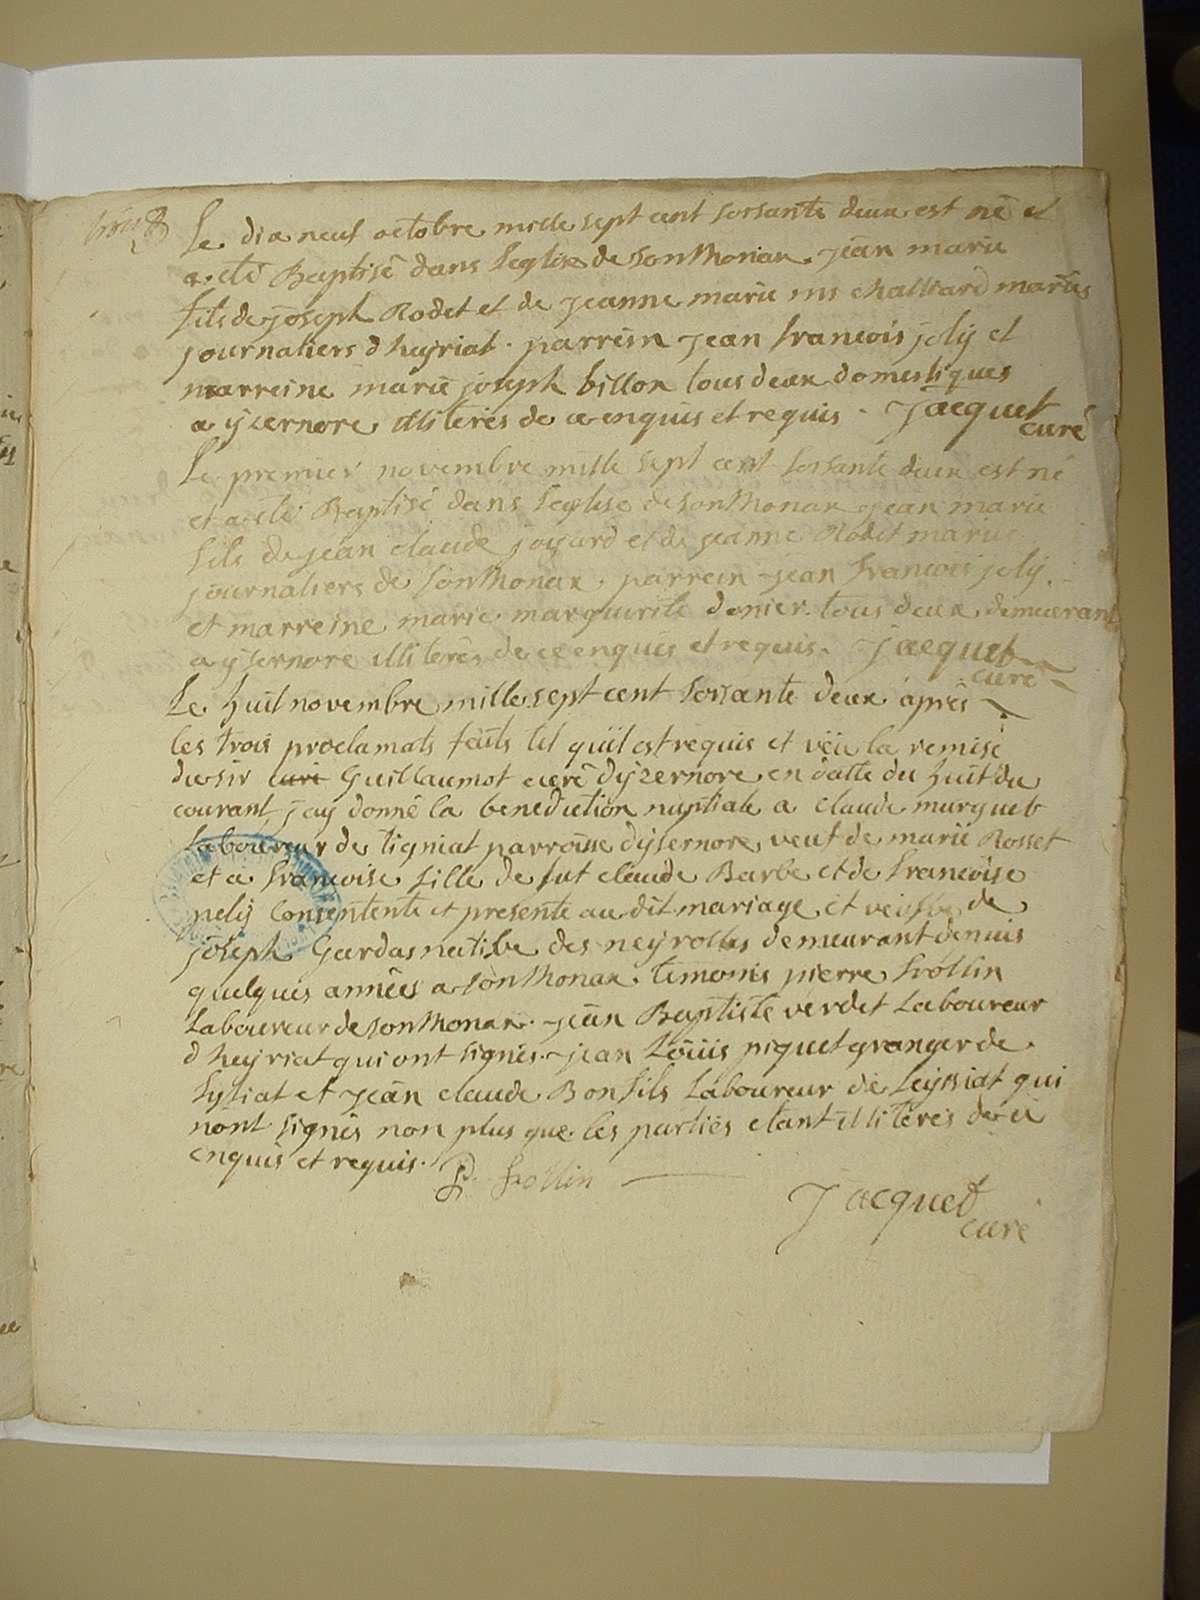 Le dix neuf octobre mille sept cent soisante deux est né et
a eté Baptisé dans leglise de sonthonax. jean marie
fils de joseph Rodet et de jeanne marie challiard mariés
journaliers d heyriat. parrein jean francois joly et
marreine marie joseph billon tous deux domestiques
a yzernore illiterés de ce enquis et requis. Jacquet
curé
Le premier novembre mille sept cent soisante deux est né
et a eté Baptisé dans leglise de sonthonax jean marie
fils de jean claude joyard et de jeanne Rodet mariés
journaliers de sonthonax. parrein jean francois joly.
et marreine marie marguerite donier tous deux demeurant
a ysernore illiterés de ce enquis et requis. Jacquet
curé
Le huit novembre mille sept cent soisante deux après
les trois proclamats faits tel quil est requis et veu la remise
du sir curé Guillaumot curé dyzernore en datte du huit du
courant jay donné la benediction nuptiale a claude murguet
Laboureur de tigniat parroisse dysernore veuf de marie Rosset
et a francoise fille de fut claude Barbe et de francoise
pely consentente et presente au dit mariage et veufve de
joseph Gardas native des neyrolles demeurant depuis
quelques années a sonthonax. temoins pierre frollin
Laboureur de sonthonax. jean Baptiste verdet Laboureur
d heyriat qui ont signés. jean Loüis piquet granger de
Lysiat et jean claude Bonfils Laboureur de Leyssiat qui
nont signés non plus que les parties etant illiterés de ce
enquis et requis. P. frollin
Jacquet
curé